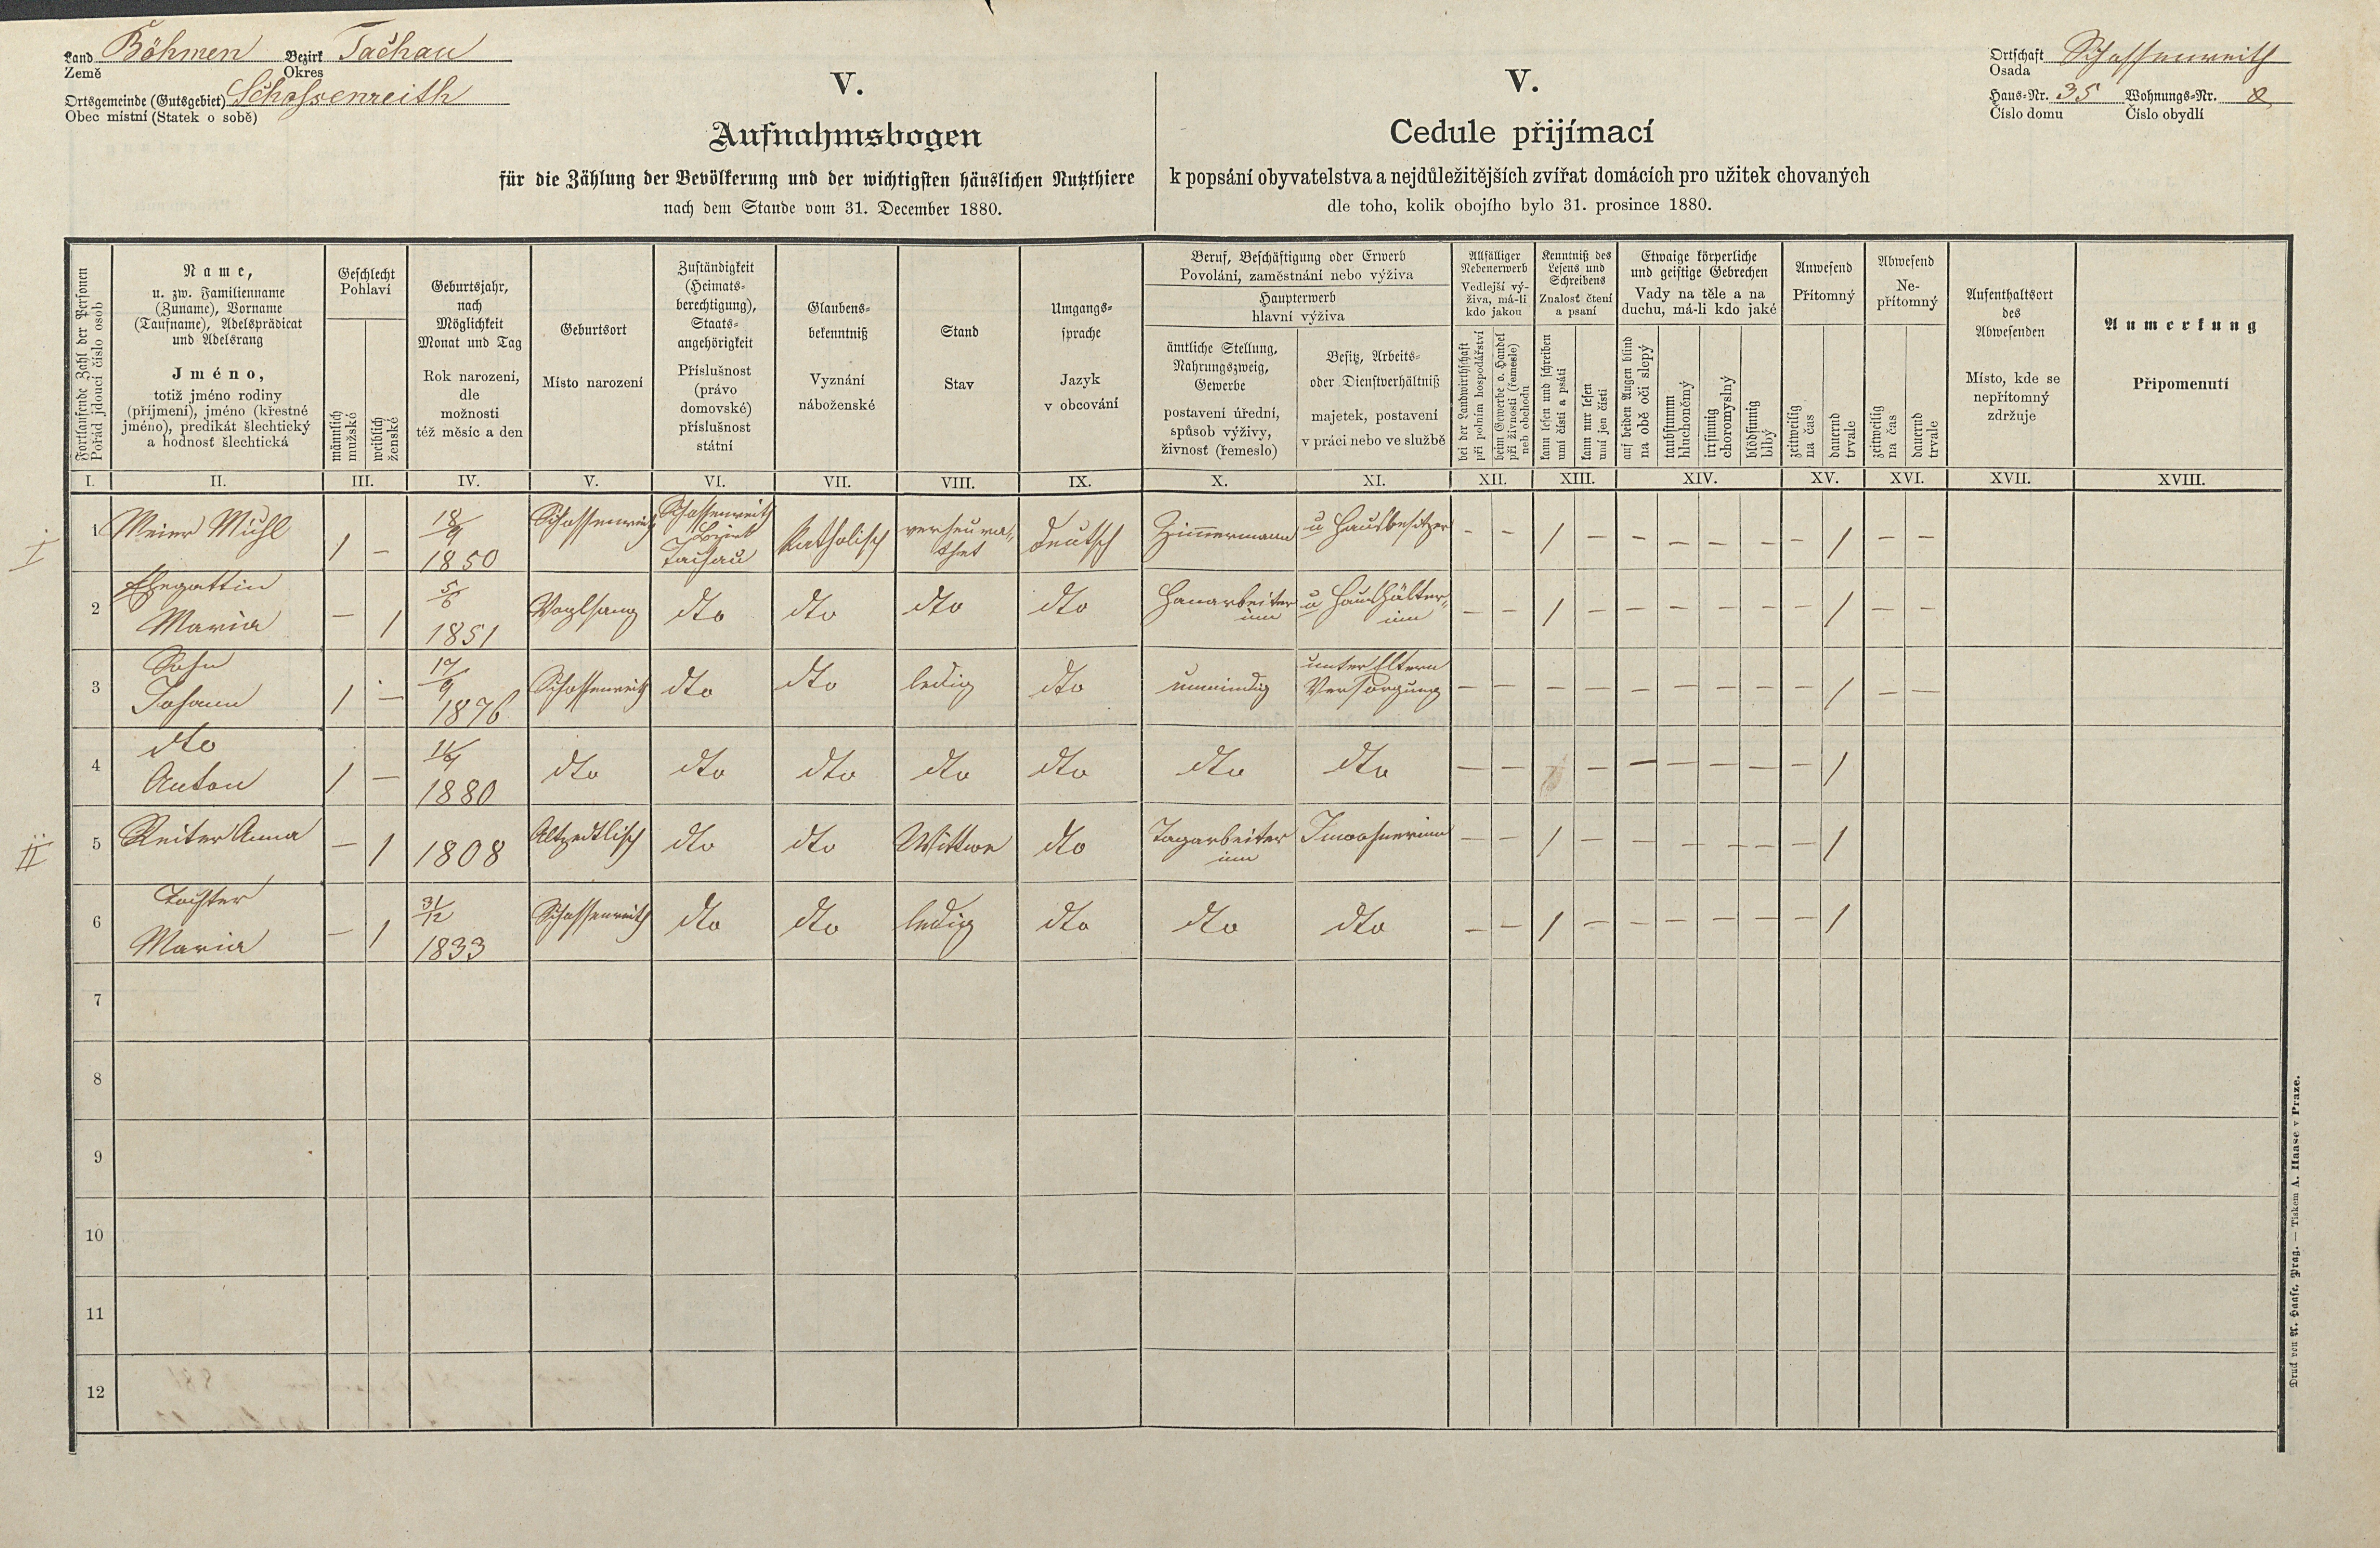 Land Böhmen Bezirk Tachau
Země Okres
Ortsgemeinde (Gutsgebiet) Schossenreith
Obec místní (Statek o sobě)
V.
Aufnahmsbogen
für die Zählung der Bevölkerung und der wichtigsten häuslichen Nutzthiere
nach dem Stande vom 31. December 1880.
V.
Cedule přijímací
k popsání obyvatelstva a nejdůležitějších zvířat domácích pro užitek chovaných
dle toho, kolik obojího bylo 31. prosince 1880.
Ortschaft Schossenreith
Osada
Haus-Nr. 35 Wohnungs-Nr. 2
Číslo domu Číslo obydlí
Fortlaufende Zahl der Personen
Pořád jdoucí číslo osob
Name,
u. zw. Familienname
(Zuname), Vorname
(Taufname), Adelsprädicat
und Adelsrang
Jméno,
totiž jméno rodiny
(příjmení), jméno (křestné
jméno), predikát šlechtický
a hodnosť šlechtická
Geschlecht
Pohlaví
männlich
mužské
weiblich
ženské
Geburtsjahr,
nach
Möglichkeit
Monat und Tag
Rok narození,
dle
možnosti
též měsíc a den
Geburtsort
Místo narození
Zuständigkeit
(Heimats-
berechtigung),
Staats-
angehörigkeit
Příslušnost
(právo
domovské)
příslušnost
státní
Glaubens-
bekenntniß
Vyznání
náboženské
Stand
Stav
Umgangs-
sprache
Jazyk
v obcování
Beruf, Beschäftigung oder Erwerb
Povolání, zaměstnání nebo výživa
Haupterwerb
hlavní výživa
ämtliche Stellung,
Nahrungszweig,
Gewerbe
postavení úřední,
spůsob výživy,
živnosť (řemeslo)
Besitz, Arbeits-
oder Dienstverhältniß
majetek, postavení
v práci nebo ve službě
Allfälliger
Nebenerwerb
Vedlejší vý-
živa, má-li
kdo jakou
bei der Landwirthschaft
při polním hospodářství
beim Gewerbe o. Handel
při živnosti (řemesle)
neb obchodu
Kenntniß des
Lesens und
Schreibens
Znalosť čtení
a psaní
kann lesen und schreiben
umí čísti a psáti
kann nur lesen
umí jen čísti
Etwaige körperliche
und geistige Gebrechen
Vady na těle a na
duchu, má-li kdo jaké
auf beiden Augen blind
na obě oči slepý
taubstumm
hluchoněmý
irrsinnig
choromyslný
blödsinnig
blbý
Anwesend
Přítomný
zeitweilig
na čas
dauernd
trvale
Abwesend
Ne-
přítomný
zeitweilig
na čas
dauernd
trvale
Aufenthaltsort
des
Abwesenden
Místo, kde se
nepřítomný
zdržuje
Anmerkung
Připomenutí
I. II. III. IV. V. VI. VII. VIII. IX. X. XI. XII. XIII. XIV. XV. XVI. XVII. XVIII.
I
1 Meier Michl 1 – 18/9 1850 Schossenreith Schossenreith Bezirk Tachau Katholisch verheura- thet deutsch Zimmermann u Hausbesitzer – – 1 – – – – – – 1 – –
2 Ehegattin Maria – 1 5/6 1851 Voglsang dto dto dto dto Hanarbeiter inn u Haushälter- inn – – 1 – – – – – – 1 – –
3 Sohn Johann 1 – 17/9 1876 Schossenreith dto dto ledig dto unmindig unter Eltern Versorgung – – – – – – – – – 1 – –
4 dto Anton 1 – 11/9 1880 dto dto dto dto dto dto dto – – – – – – – – 1
II
5 Reiter Anna – 1 1808 Altzedtlisch dto dto Wittwe dto Tagarbeiter inn Inwohnerinn – – 1 – – – – – – 1
6 Tochter Maria – 1 31/12 1833 Schossenreith dto dto ledig dto dto dto – – 1 – – – – – – 1
7
8
9
10
11
12
Druck von A. Haase, Prag. — Tiskem A. Haase v Praze.